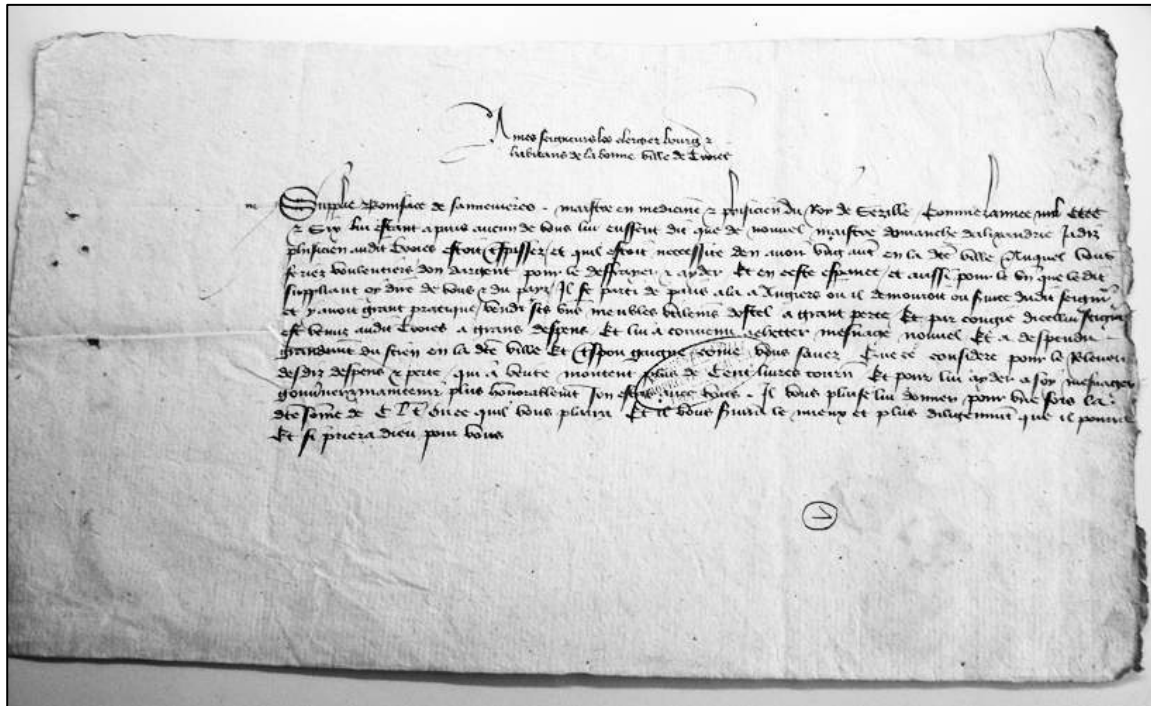 A mes seigneurs les clergie bourg &
habitans de la bonne ville de Troies
Supplie Boniface de maistre en medicine & phisicien du Roy de Sezille Comme lannee mil CCCC
& Six lui estant a paris aucun de vous lui eussent dit que de nouvel maistre domanche dalixandrie Jadiz
phisicien audit Troies estoit trespassez et quil estoit necessite den avoir ung aut en la dce ville Auquel vous
feriez voulentiers don dargent pour le deffrayer & ayder Et en ceste espance et aussi pour le bn que le dit
suppliant oy dire de vous & du pays Il se parti de paris ala a Angiers ou il demouroit ou svice dudit seigneur
et y avoit grant pratique vendi ses biens meubles dostel a grant perte Et par congie dicellui seigneur
est venus audit Troies a grans despens Et lui a convenu achetter mesnage nouvel Et a despendu
grandment du sien en la dce ville Et gaigne come vous savez Que ce considere pour le
desdiz despens & perte qui a verite montent plus de Cent livres tourn Et pour lui ayder a soy mesnager
gouverner maintenir plus honorablement son estat avec vous Il vous plaise lui donner pour une fois la
dce some de C l t ou ce quil vous plaira Et il vous svira le mieux et plus diligemment que il pourra
Et si priera dieu pour vous